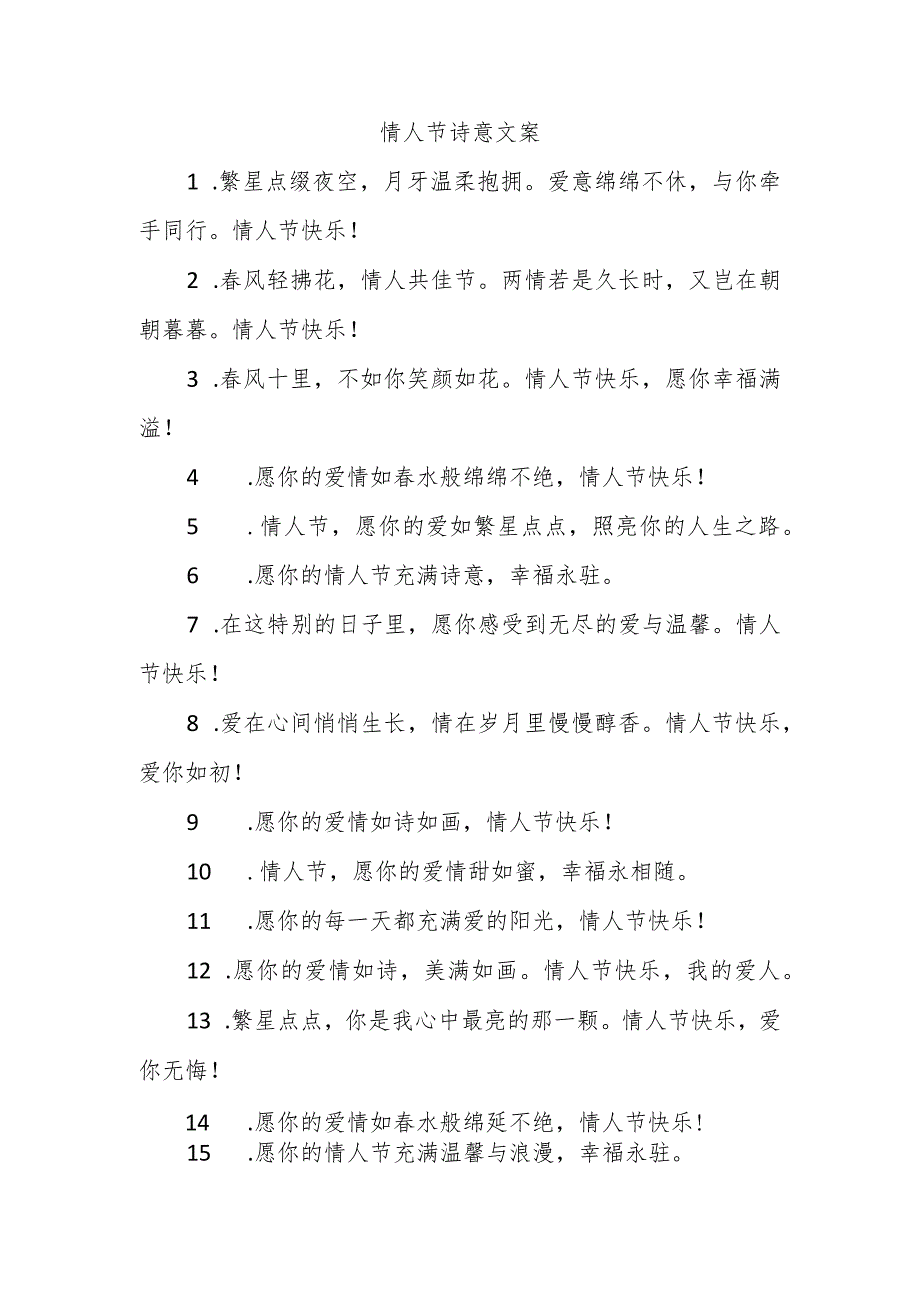 情人节诗意文案
1 .繁星点缀夜空，月牙温柔抱拥。爱意绵绵不休，与你牵
手同行。情人节快乐！
2 .春风轻拂花，情人共佳节。两情若是久长时，又岂在朝
朝暮暮。情人节快乐！
3 .春风十里，不如你笑颜如花。情人节快乐，愿你幸福满
溢！
4 .愿你的爱情如春水般绵绵不绝，情人节快乐！
5 .情人节，愿你的爱如繁星点点，照亮你的人生之路。
6 .愿你的情人节充满诗意，幸福永驻。
7 .在这特别的日子里，愿你感受到无尽的爱与温馨。情人
节快乐！
8 .爱在心间悄悄生长，情在岁月里慢慢醇香。情人节快乐，
爱你如初！
9 .愿你的爱情如诗如画，情人节快乐！
10 .情人节，愿你的爱情甜如蜜，幸福永相随。
11 .愿你的每一天都充满爱的阳光，情人节快乐！
12 .愿你的爱情如诗，美满如画。情人节快乐，我的爱人。
13 .繁星点点，你是我心中最亮的那一颗。情人节快乐，爱
你无悔！
14 .愿你的爱情如春水般绵延不绝，情人节快乐！
15 .愿你的情人节充满温馨与浪漫，幸福永驻。